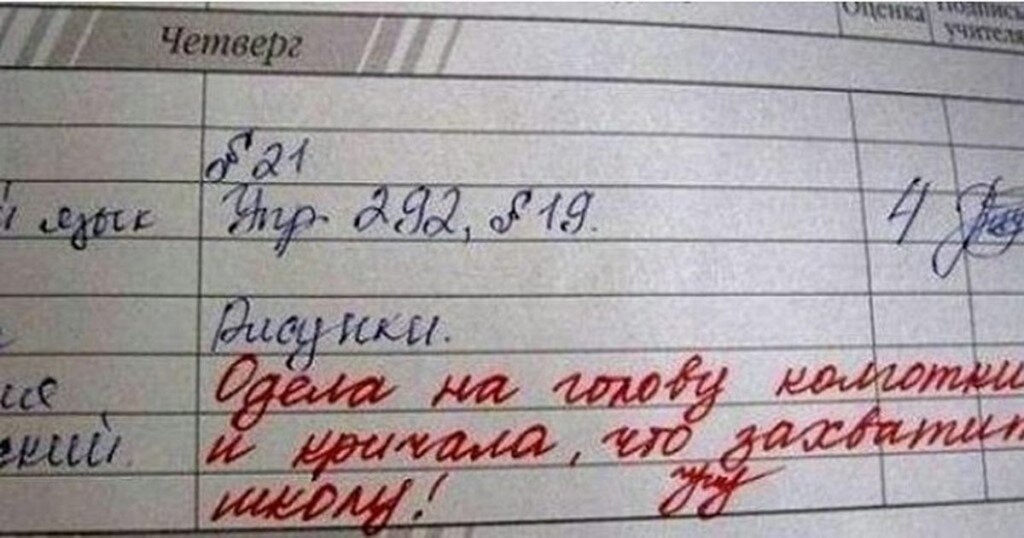 Оценка Подпись учителя
Четверг
§ 21
й язык Упр. 292, § 19. 4
Рисунки.
ия Одела на голову колготки
ский. и кричала, что захватит
школу!